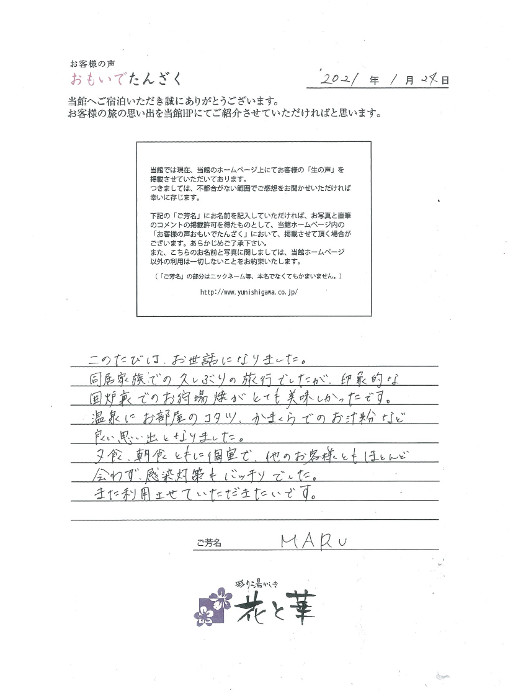 お客様の声
おもいでたんざく
2021年1月24日
当館へご宿泊いただき誠にありがとうございます。
お客様の旅の思い出を当館HPにてご紹介させていただければと思います。
当館では現在、当館のホームページ上にてお客様の「生の声」を
掲載させていただいております。
つきましては、不都合がない範囲でご感想をお聞かせいただければ
幸いに存じます。
下記の「ご芳名」にお名前を記入していただければ、お写真と直筆
のコメントの掲載許可を得たものとして、当館ホームページ内の
「お客様の声おもいでたんざく」において、掲載させて頂く場合が
ございます。あらかじめご了承下さい。
また、こちらのお名前と写真に関しましては、当館ホームページ
以外の利用は一切しないことをお約束いたします。
(「ご芳名」の部分はニックネーム等、本名でなくてもかまいません。)
http://www.yunishigawa.co.jp/
このたびは、お世話になりました。
同居家族での久しぶりの旅行でしたが、印象的な
囲炉裏でのお狩場焼がとても美味しかったです。
温泉にお部屋のコタツ、かまくらでのお汁粉など
良い思い出となりました。
夕食、朝食ともに個室で、他のお客様ともほとんど
会わず、感染対策もバッチリでした。
また利用させていただきたいです。
ご芳名 MARU
花と華